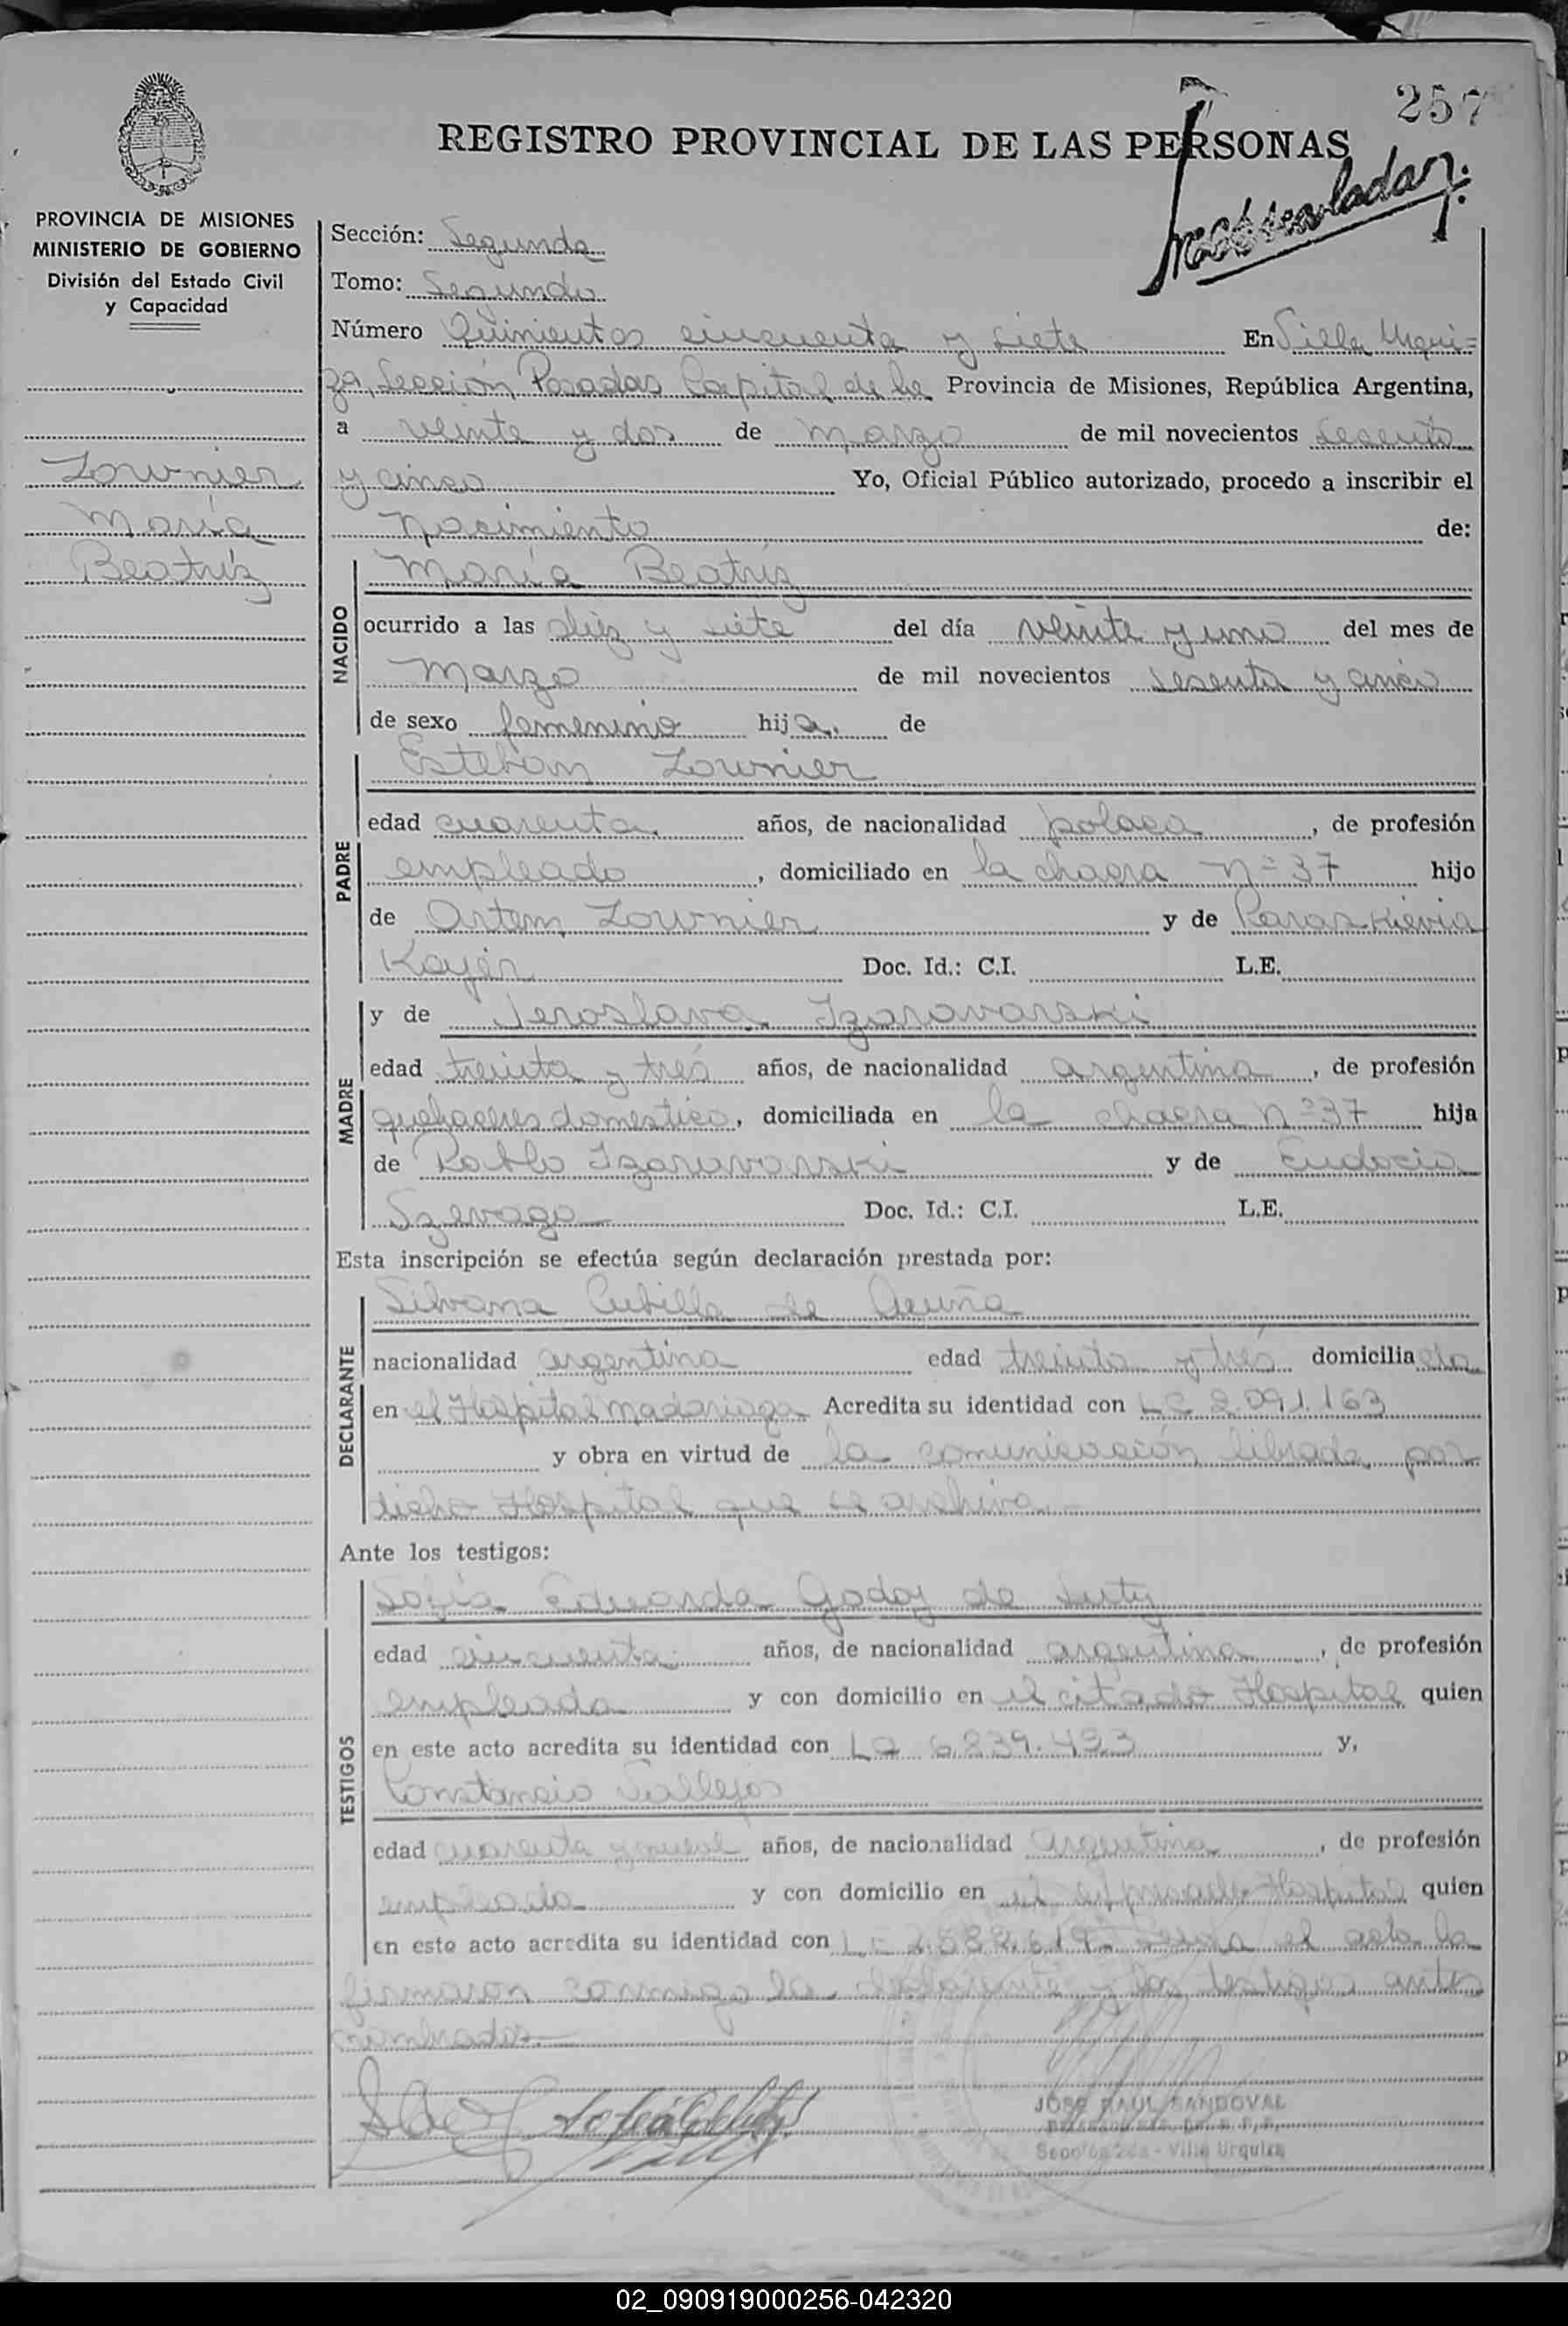 257
REGISTRO PROVINCIAL DE LAS PERSONAS
PROVINCIA DE MISIONES
MINISTERIO DE GOBIERNO
División del Estado Civil
y Capacidad
Zownier
María
Beatríz
Sección: Segunda
Tomo: Segundo
Número Quinientos cincuenta y siete En Villa Urqui=
za, Sección Posadas Capital de la Provincia de Misiones, República Argentina,
a veinte y dos de Marzo de mil novecientos sesenta
y cinco Yo, Oficial Público autorizado, procedo a inscribir el
Nacimiento de:
NACIDO
María Beatríz
ocurrido a las diez y siete del día veinte y uno del mes de
Marzo de mil novecientos sesenta y cinco
de sexo femenino hija. de
PADRE
Esteban Zownier
edad cuarenta años, de nacionalidad polaca, de profesión
empleado, domiciliado en la chacra Nº 37 hijo
de Artem Zownier y de Paraskievia
Kayer Doc. Id.: C.I. L.E.
MADRE
y de Jeroslava Izaravarski
edad treinta y tres años, de nacionalidad argentina, de profesión
quehaceres domestico, domiciliada en la chacra Nº 37 hija
de Pablo y de Eudocia
Doc. Id.: C.I. L.E.
Esta inscripción se efectúa según declaración prestada por:
DECLARANTE
Silvana Cubilla de Acuña
nacionalidad argentina edad treinta y tres domiciliada
en el Hospital Madariaga Acredita su identidad con LC 2.091.163
y obra en virtud de la comunicación librada por
dicho Hospital que se archiva.-
Ante los testigos:
TESTIGOS
Sofía Eduarda Godoy de
edad cincuenta años, de nacionalidad argentina, de profesión
empleada y con domicilio en el citado Hospital quien
en este acto acredita su identidad con LC 6.839.493 y,
Constancio Vallejos
edad cuarenta y nueve años, de nacionalidad Argentina, de profesión
empleado y con domicilio en el expresado Hospital quien
en este acto acredita su identidad con el acta la
firmaron conmigo la declarante y los testigos antes
nombrados.
JOSE RAUL SANDOVAL
Sección 2da - Villa Urquiza
02_090919000256-042320